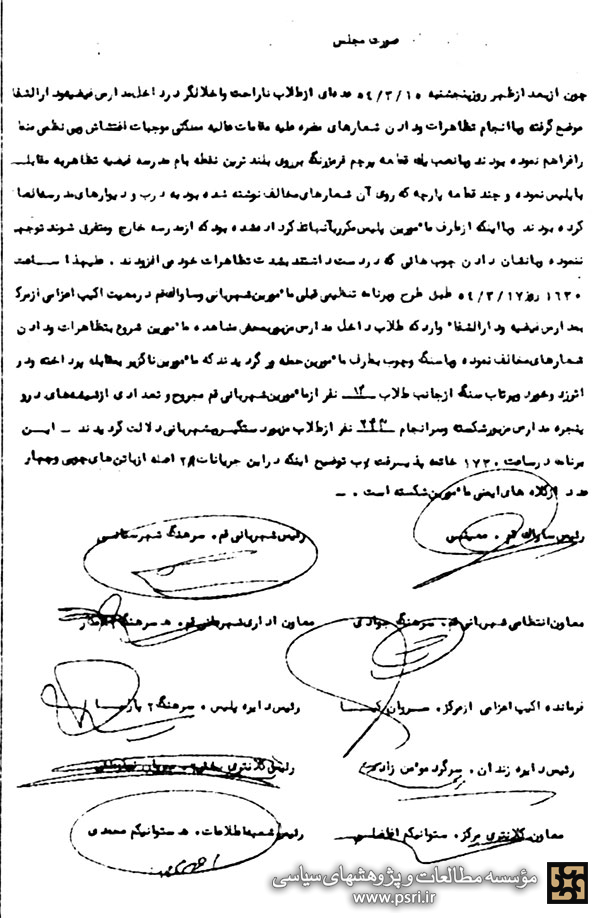 صورت مجلس
چون از بعد از ظهر روز پنجشنبه ۵٤/۳/۱۵ عده‌ای از طلاب ناراحت و اخلالگر در داخل مدارس فیضیه و دارالشفا
موضع گرفته و با انجام تظاهرات و دادن شعارهای مضره علیه مقامات عالیه مملکتی موجبات اغتشاش و بی نظمی
را فراهم نموده بودند و با نصب یک قطعه پرچم قرمز رنگ بر روی بلند ترین نقطه بام مدرسه فیضیه تظاهر به مقابله
با پلیس نموده و چند قطعه پارچه که روی آن شعارهای مخالف نوشته شده بود به درب و دیوارهای مدرسه
کرده بودند و با اینکه از طرف مأمورین پلیس مکرر بآنها تذکر داده شده بود که از مدرسه خارج و متفرق شوند توجهی
ننموده و با نشان دادن چوب هائی که در دست داشتند بشدت تظاهرات خود می افزودند . علیهذا ساعت
۱٦۳۰ روز ۵٤/۳/۱۷ طبق طرح و برنامه تنظیمی قبلی مأمورین شهربانی و ساواک قم در معیت اکیپ اعزامی از مرکز
بمدارس فیضیه و دارالشفاء وارد که طلاب داخل مدارس مزبور بمحض مشاهده مأمورین شروع بتظاهرات و دادن
شعارهای مخالف نموده و با سنگ و چوب بطرف مأمورین حمله ور گردیدند که مأمورین ناگزیر بمقابله پرداخته و در
اثر زد و خورد و پرتاب سنگ از جانب طلاب نفر از مأمورین شهربانی قم مجروح و تعدادی از شیشه‌های در و
پنجره مدارس مزبور شکسته و سرانجام نفر از طلاب مزبور دستگیر و بشهربانی دلالت گردیدند – این
برنامه در ساعت ۱۷۳۰ خاتمه پذیرفت توضیح اینکه در این جریانات اصله از باتن های چوبی و چهار
عدد از کلاه های ایمنی مأمورین شکسته است . –
رئیس ساواک قم . معینی رئیس شهربانی قم . سرهنگ شهرستانی
معاون انتظامی شهربانی قم . سرهنگ جوادی معاون اداری شهربانی قم .
فرمانده اکیپ اعزامی از مرکز . رئیس دایره پلیس . سرهنگ ۲
رئیس دایره زندان . سرگرد مومن زاده رئیس کلانتری
معاون کلانتری مرکز . ستوانیکم رئیس شعبه اطلاعات . ستوانیکم محمدی
مؤسسه مطالعات و پژوهشهای سیاسی
www.psri.ir